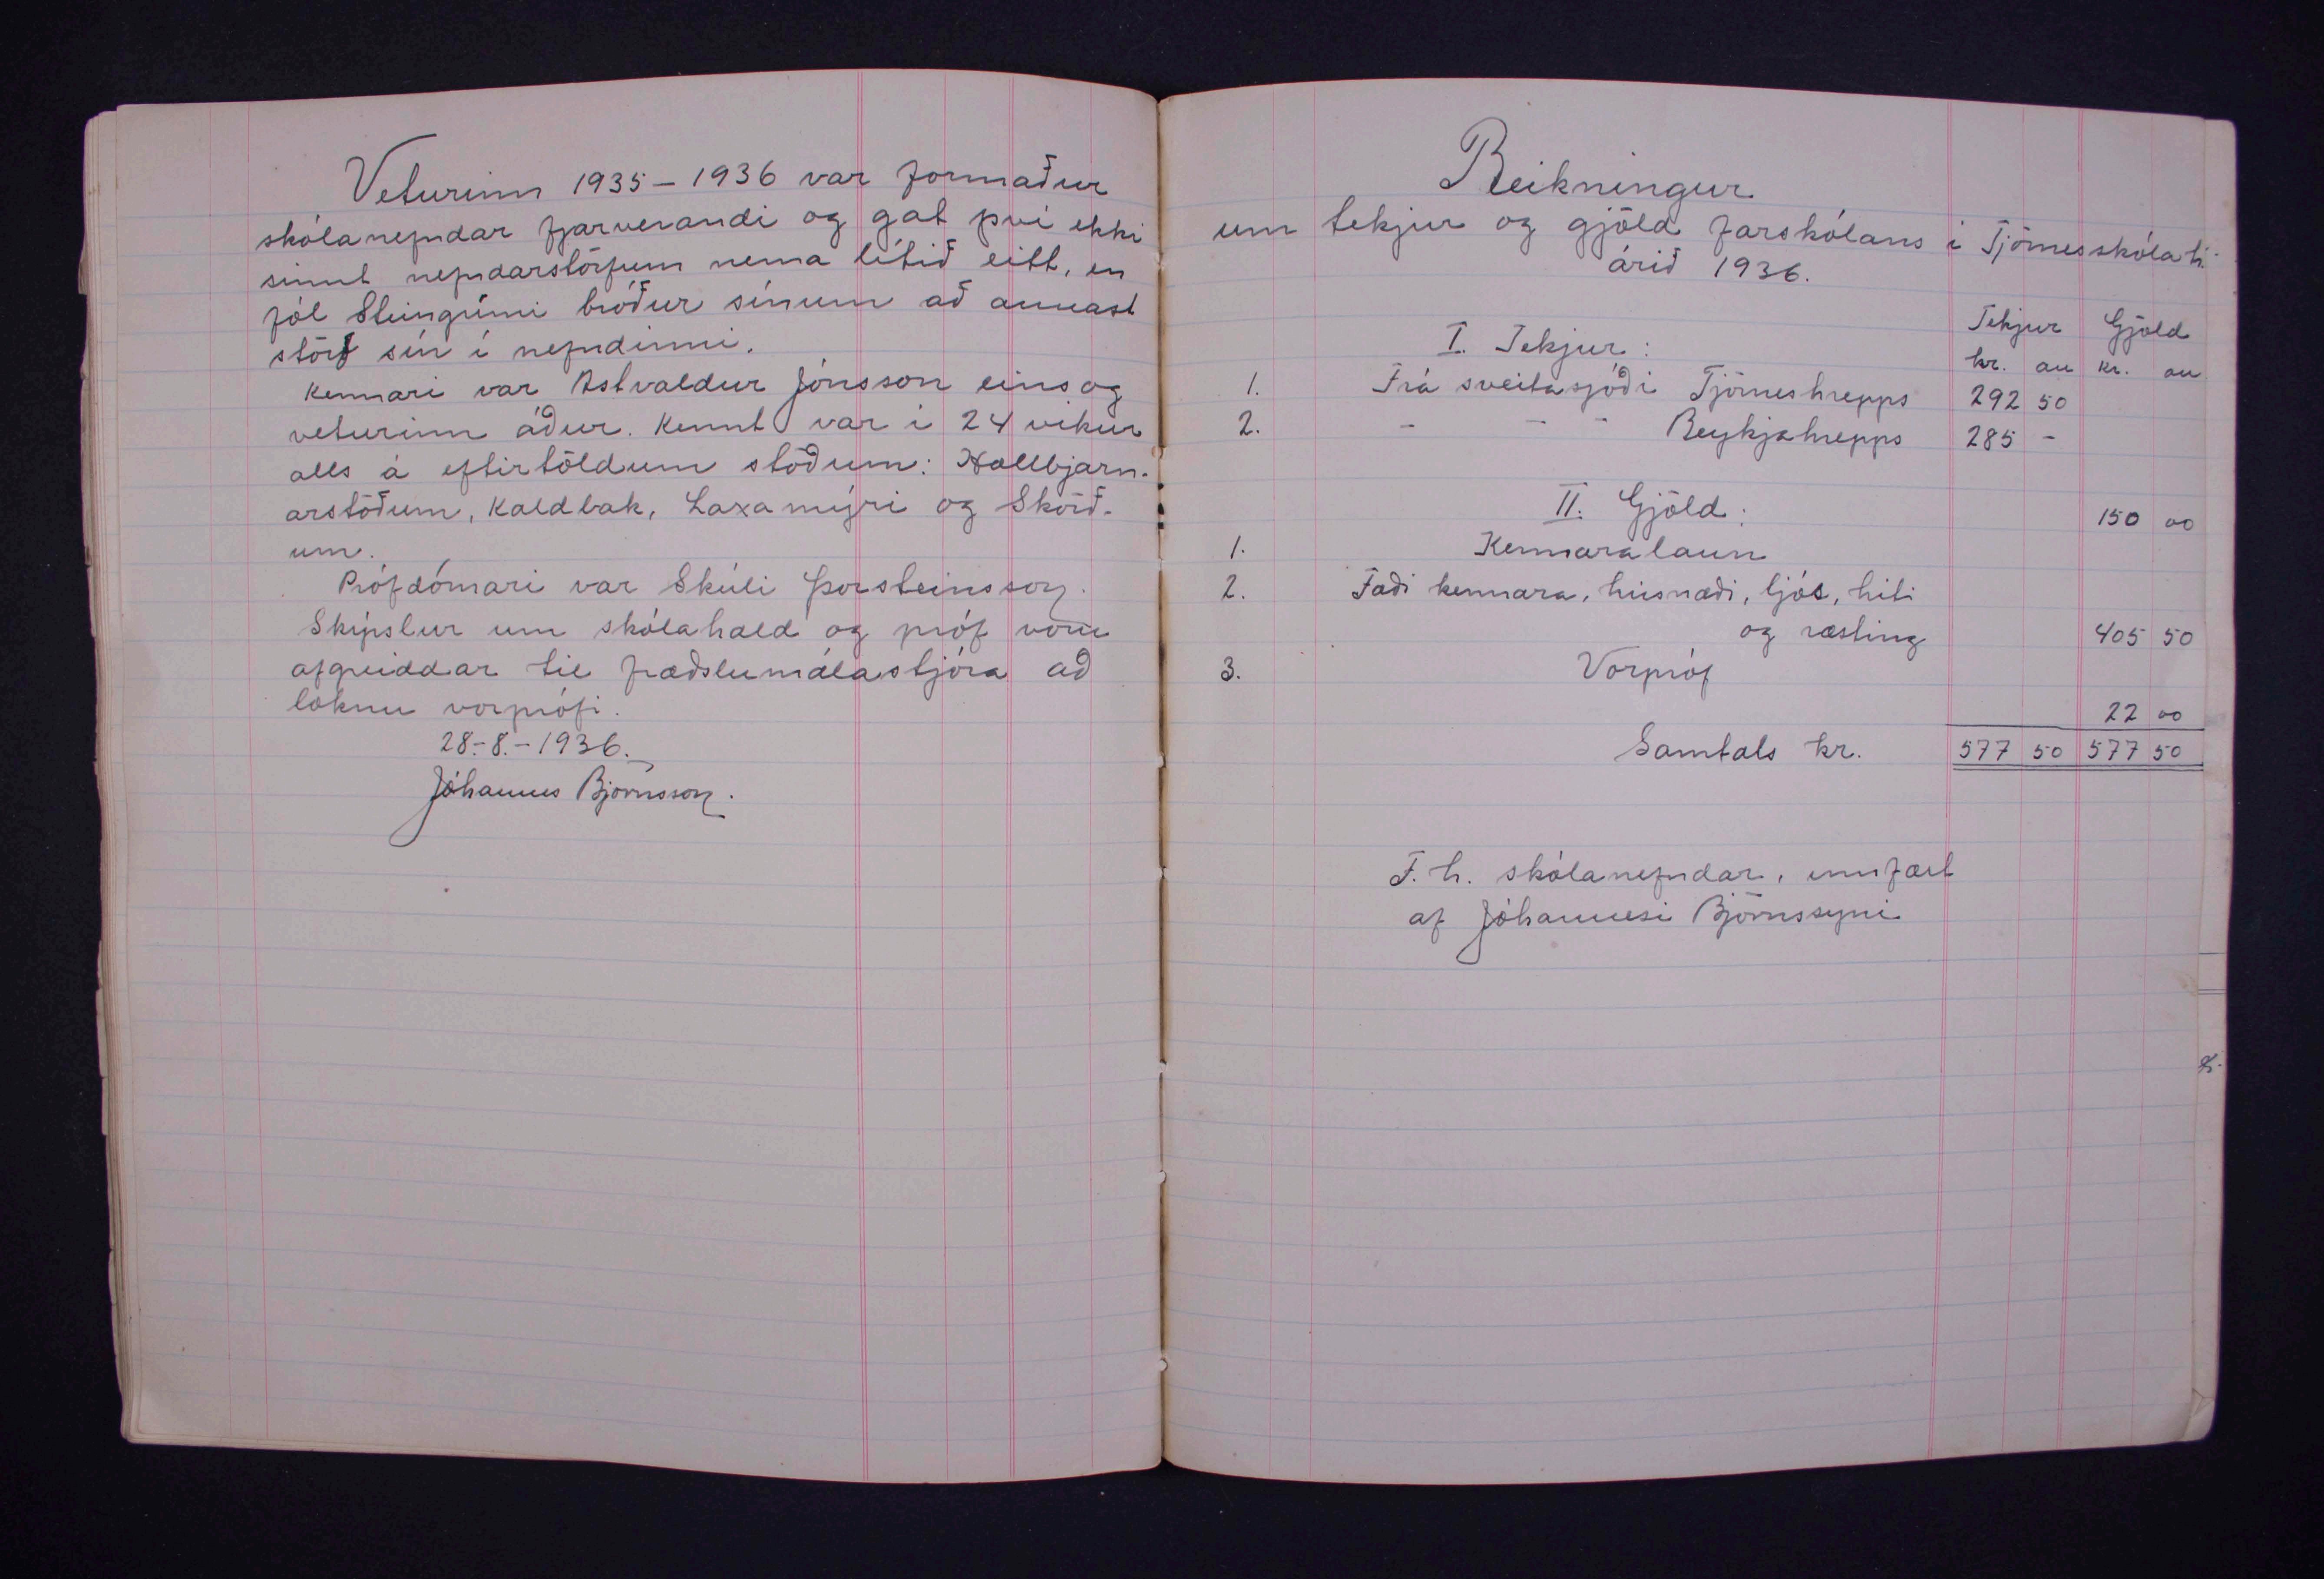 Veturinn 1935-1936 var formaður
skólanefndar fjarverandi og gat því ekki
sinnt nefndarstörfum nema lítið eitt, en
fól Steingrími bróður sínum að annast
störf sín í nefndinni.
Kennari var Astvaldur Jónsson eins og
veturinn áður. Kennt var í 24 vikur
alls á eftirtöldum stöðum: Hallbjarn-
arstöðum, Kaldbak, Laxamýri og Skörð-
um.
Prófdómari var Skúli Þorsteinsson.
Skýrslur um skólahald og próf voru
afgreiddar til fræðslumálastjóra að
loknu vorprófi.
28.-8.-1936.
Jóhannes Björnsson.
Reikningur
um tekjur og gjöld farskólans í Tjörnesskólah.
árið 1936.
Tekjur Gjöld
I. Tekjur: kr. au kr. au
1. Frá sveitasjóði Tjörneshrepps 292 50
2. - - - Reykjahrepps 285 -
II. Gjöld: 150 00
1. Kennaralaun
2. Fæði kennara, húsnæði, ljós, hiti
og ræsting 405 50
3. Vorpróf
22 00
Samtals kr. 577 50 577 50
F. h. skólanefndar, innfært
af Jóhannesi Björnssyni